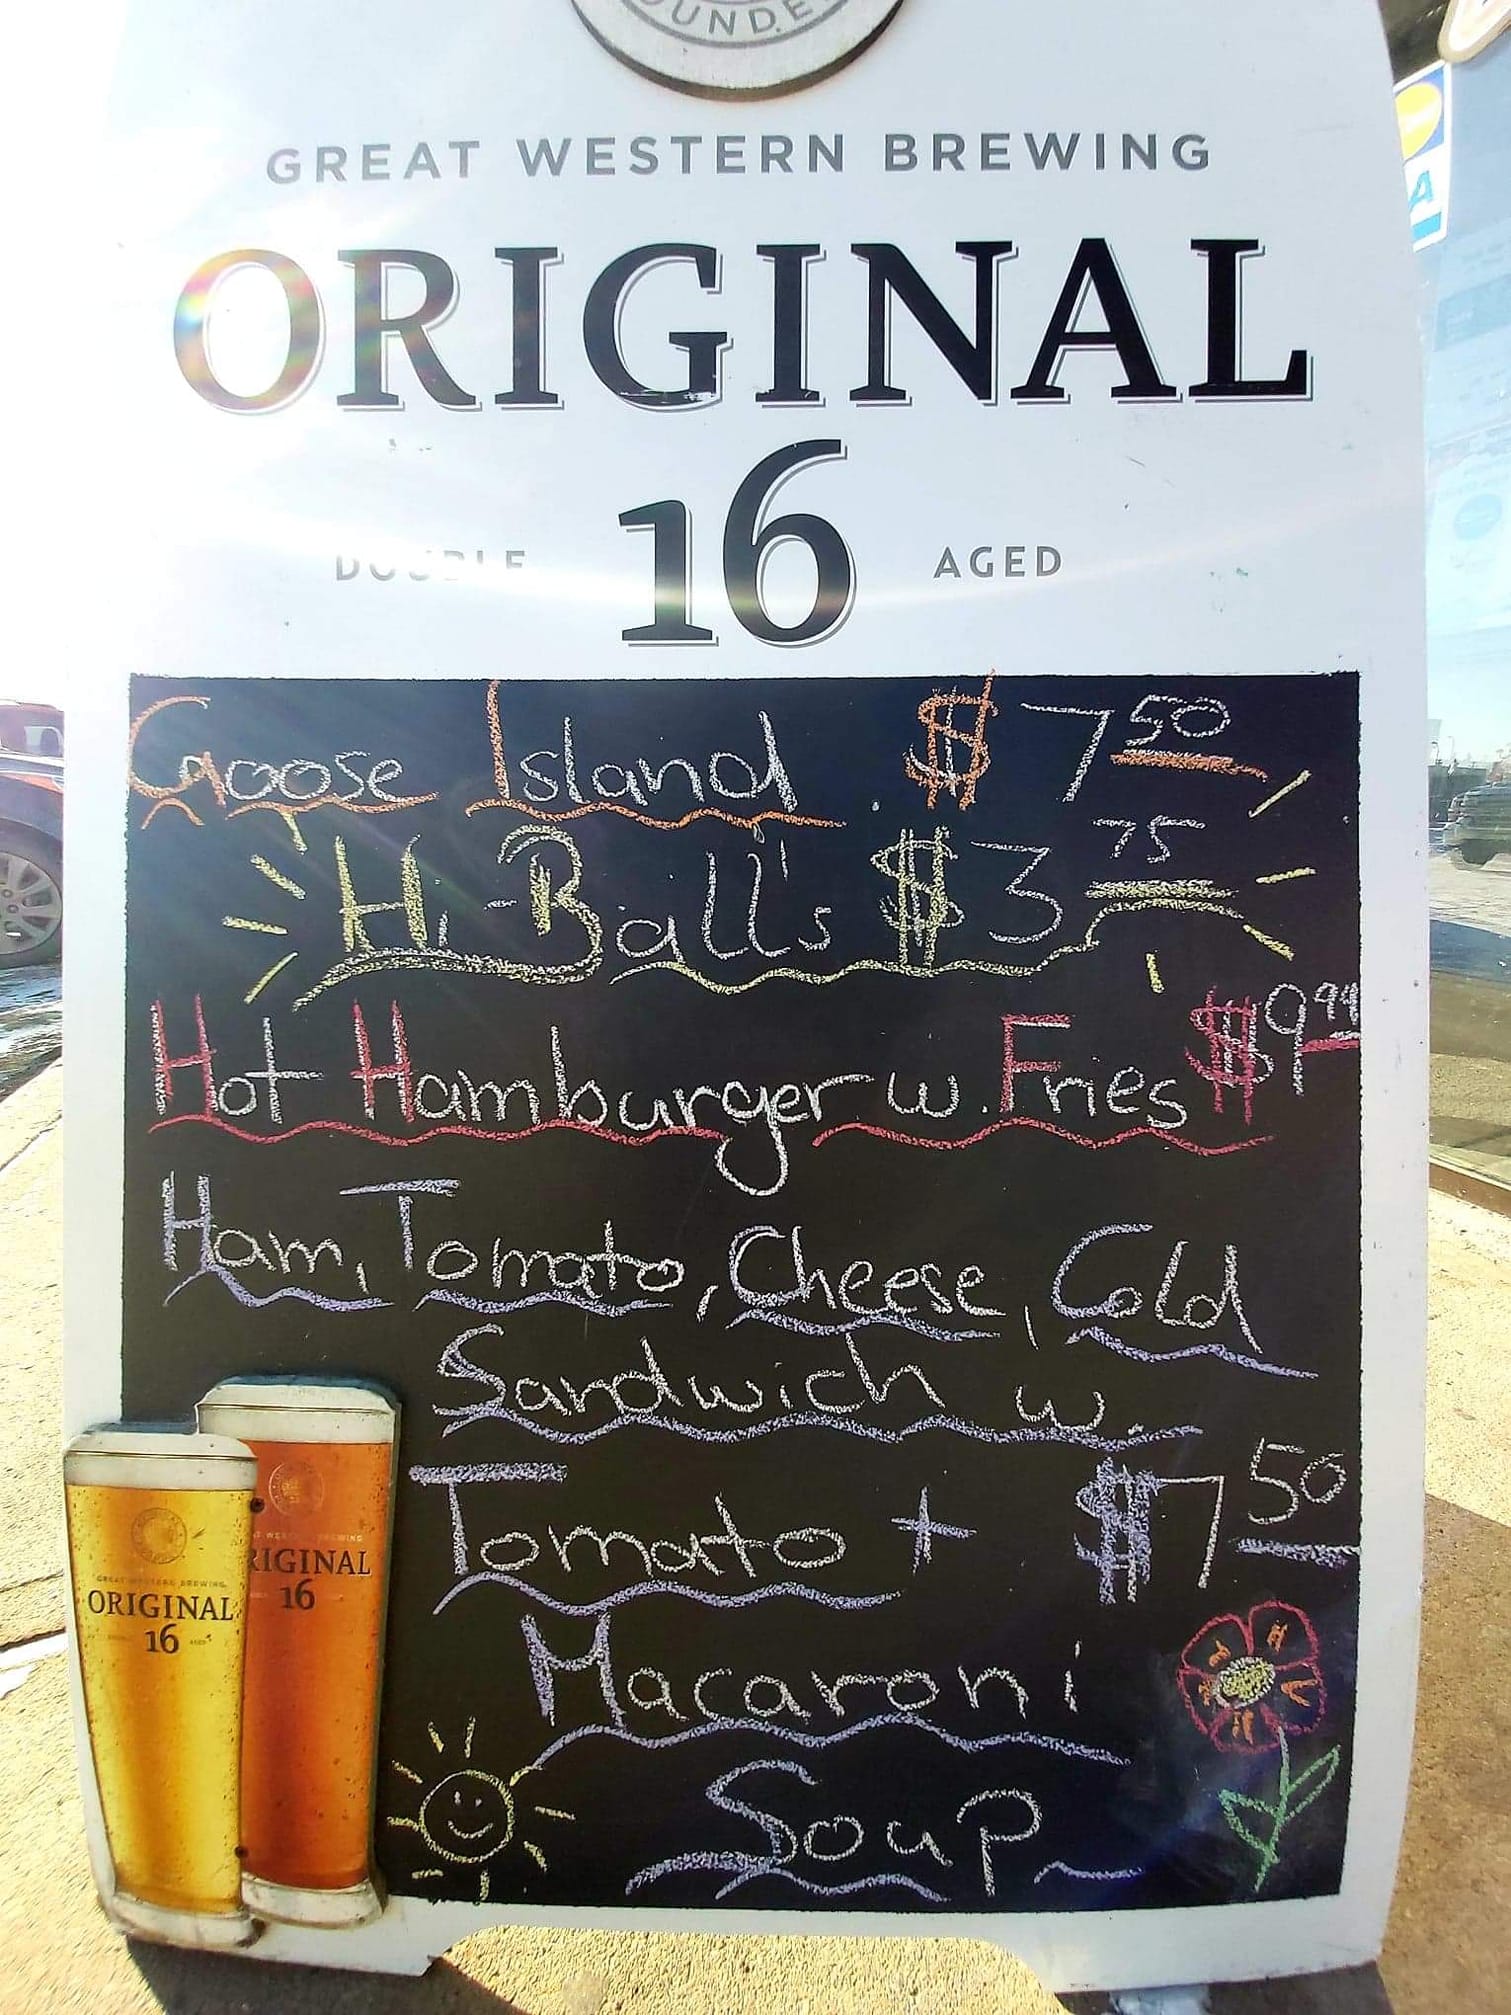 OUNDE
GREAT WESTERN BREWING
ORIGINAL
16
DOUBLE AGED
Goose Island . $7 50
Hi-Ball's $3 75
Hot Hamburger w. Fries $9 99
Ham, Tomato, Cheese, Cold
Sandwich w.
Tomato + $7 50
Macaroni
Soup
GREAT WESTERN BREWING
ORIGINAL
16
AT WESTERN BREWING
RIGINAL
16